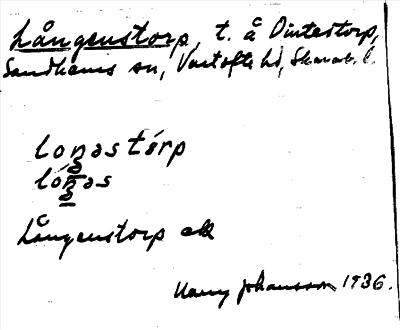 Långenstorp, t. å Dintestorp,
Sandhems sn, Vartofta hd, Skarab. l.
loŋəstórp
lóŋəs
Långenstorp ek
Harry Johansson 1936.